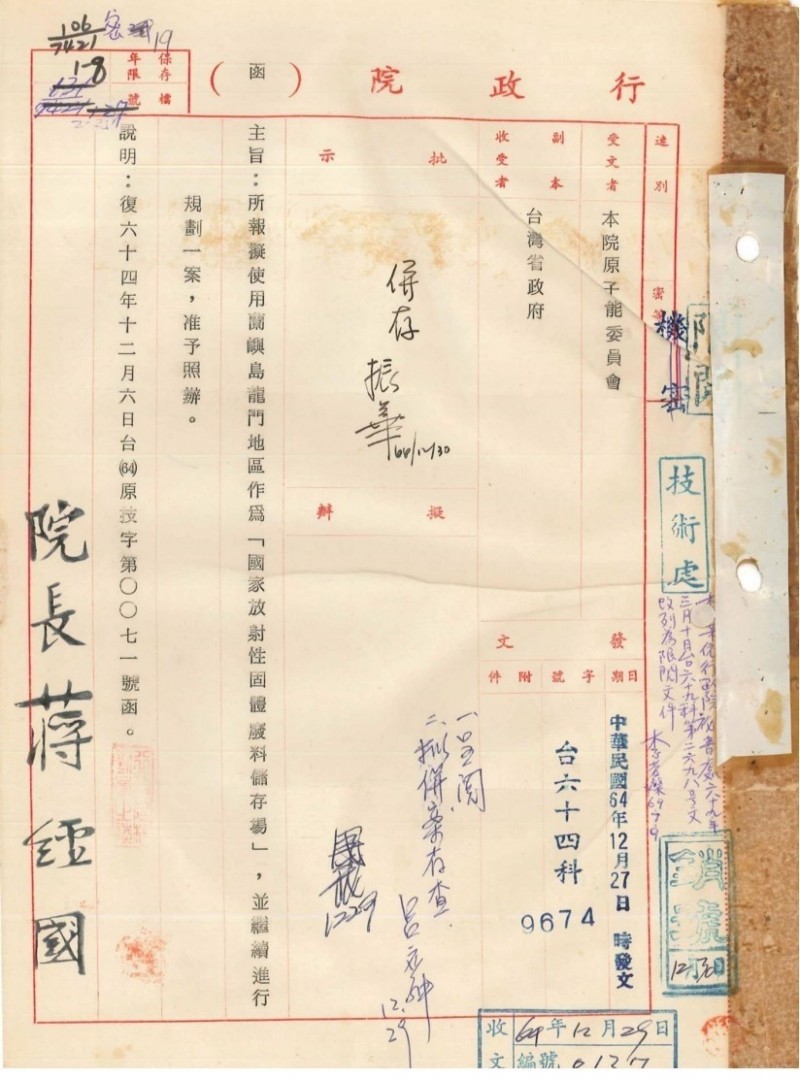 行政院
(函)
保存年限
檔號
106/7421
19
18
速別
密等
機密
受文者
本院原子能委員會
副本收受者
台灣省政府
批示
併存
振華
64/12/30
擬辦
一、呈閱
二、擬併案存查.
12.29
1229
發文
日期
字號
附件
中華民國64年12月27日 時發文
台六十四科
9674
主旨：所報擬使用蘭嶼島龍門地區作爲「國家放射性固體廢料儲存場」，並繼續進行
規劃一案，准予照辦。
說明：復六十四年十二月六日台(64)原技字第〇〇七一號函。
院長蔣經國
限閱
技術處
本案依行政院祕書處六十九年
三月十日台六十九科第二六九八号文
改列為限閱文件
銷號
12.30
收文
64年12月29日
編號